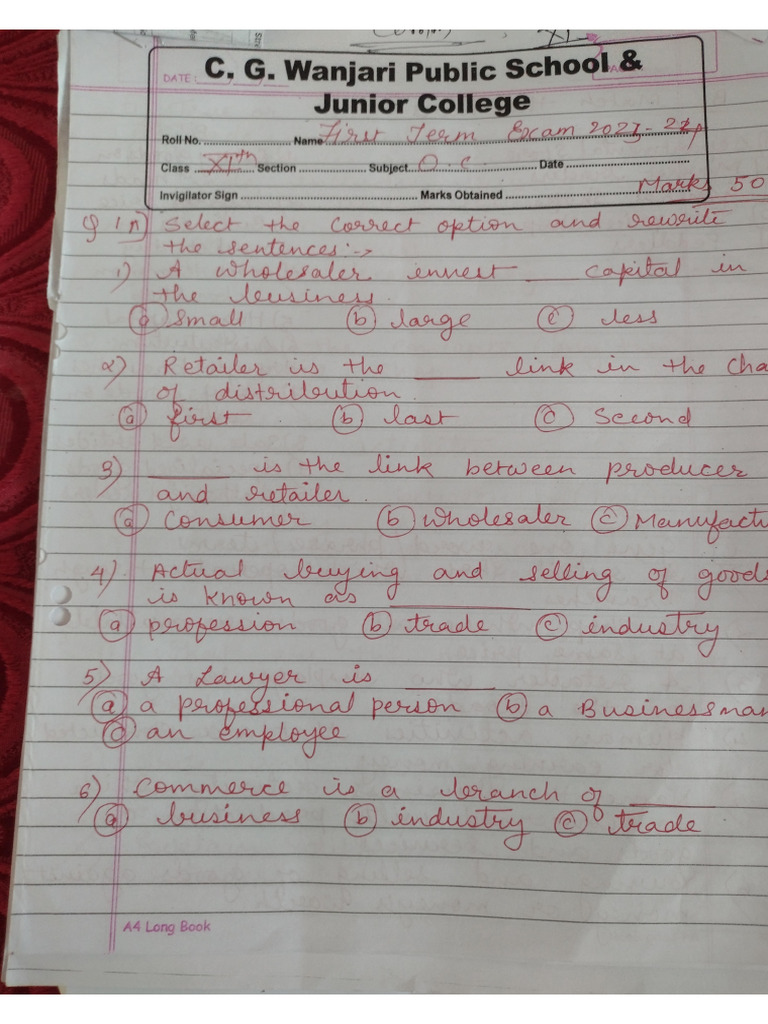 C. G. Wanjari Public School &
Junior College
DATE:
Roll No. Name First Term Exam 2023-24
Class XIth Section Subject O.C. Date
Invigilator Sign Marks Obtained Marks 50
Q 1 A) Select the correct option and rewrite
the sentences:→
1) A wholesaler invest ___ capital in
the business.
(a) Small (b) large (c) less
2) Retailer is the ____ link in the cha
of distribution
(a) first (b) last (c) Second
3) _____ is the link between producer
and retailer.
(a) Consumer (b) wholesaler (c) Manufact
4) Actual buying and selling of goods
is known as _______
(a) profession (b) trade (c) industry
5) A Lawyer is ______
(a) a professional person (b) a Businessman
(c) an employee
6) Commerce is a branch of _____
(a) business (b) industry (c) trade
A4 Long Book